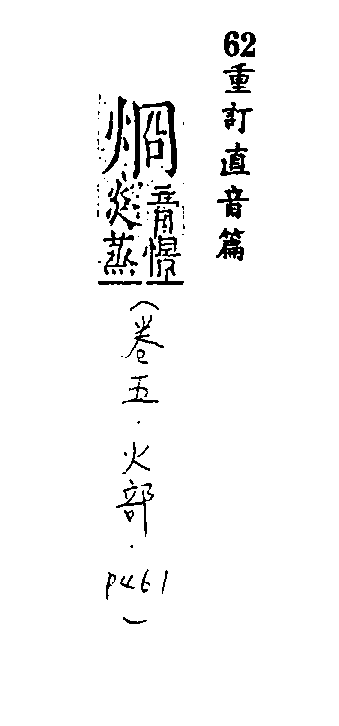 62重訂直音篇
烱
音憬
炎蒸
(卷五．火部．p461)